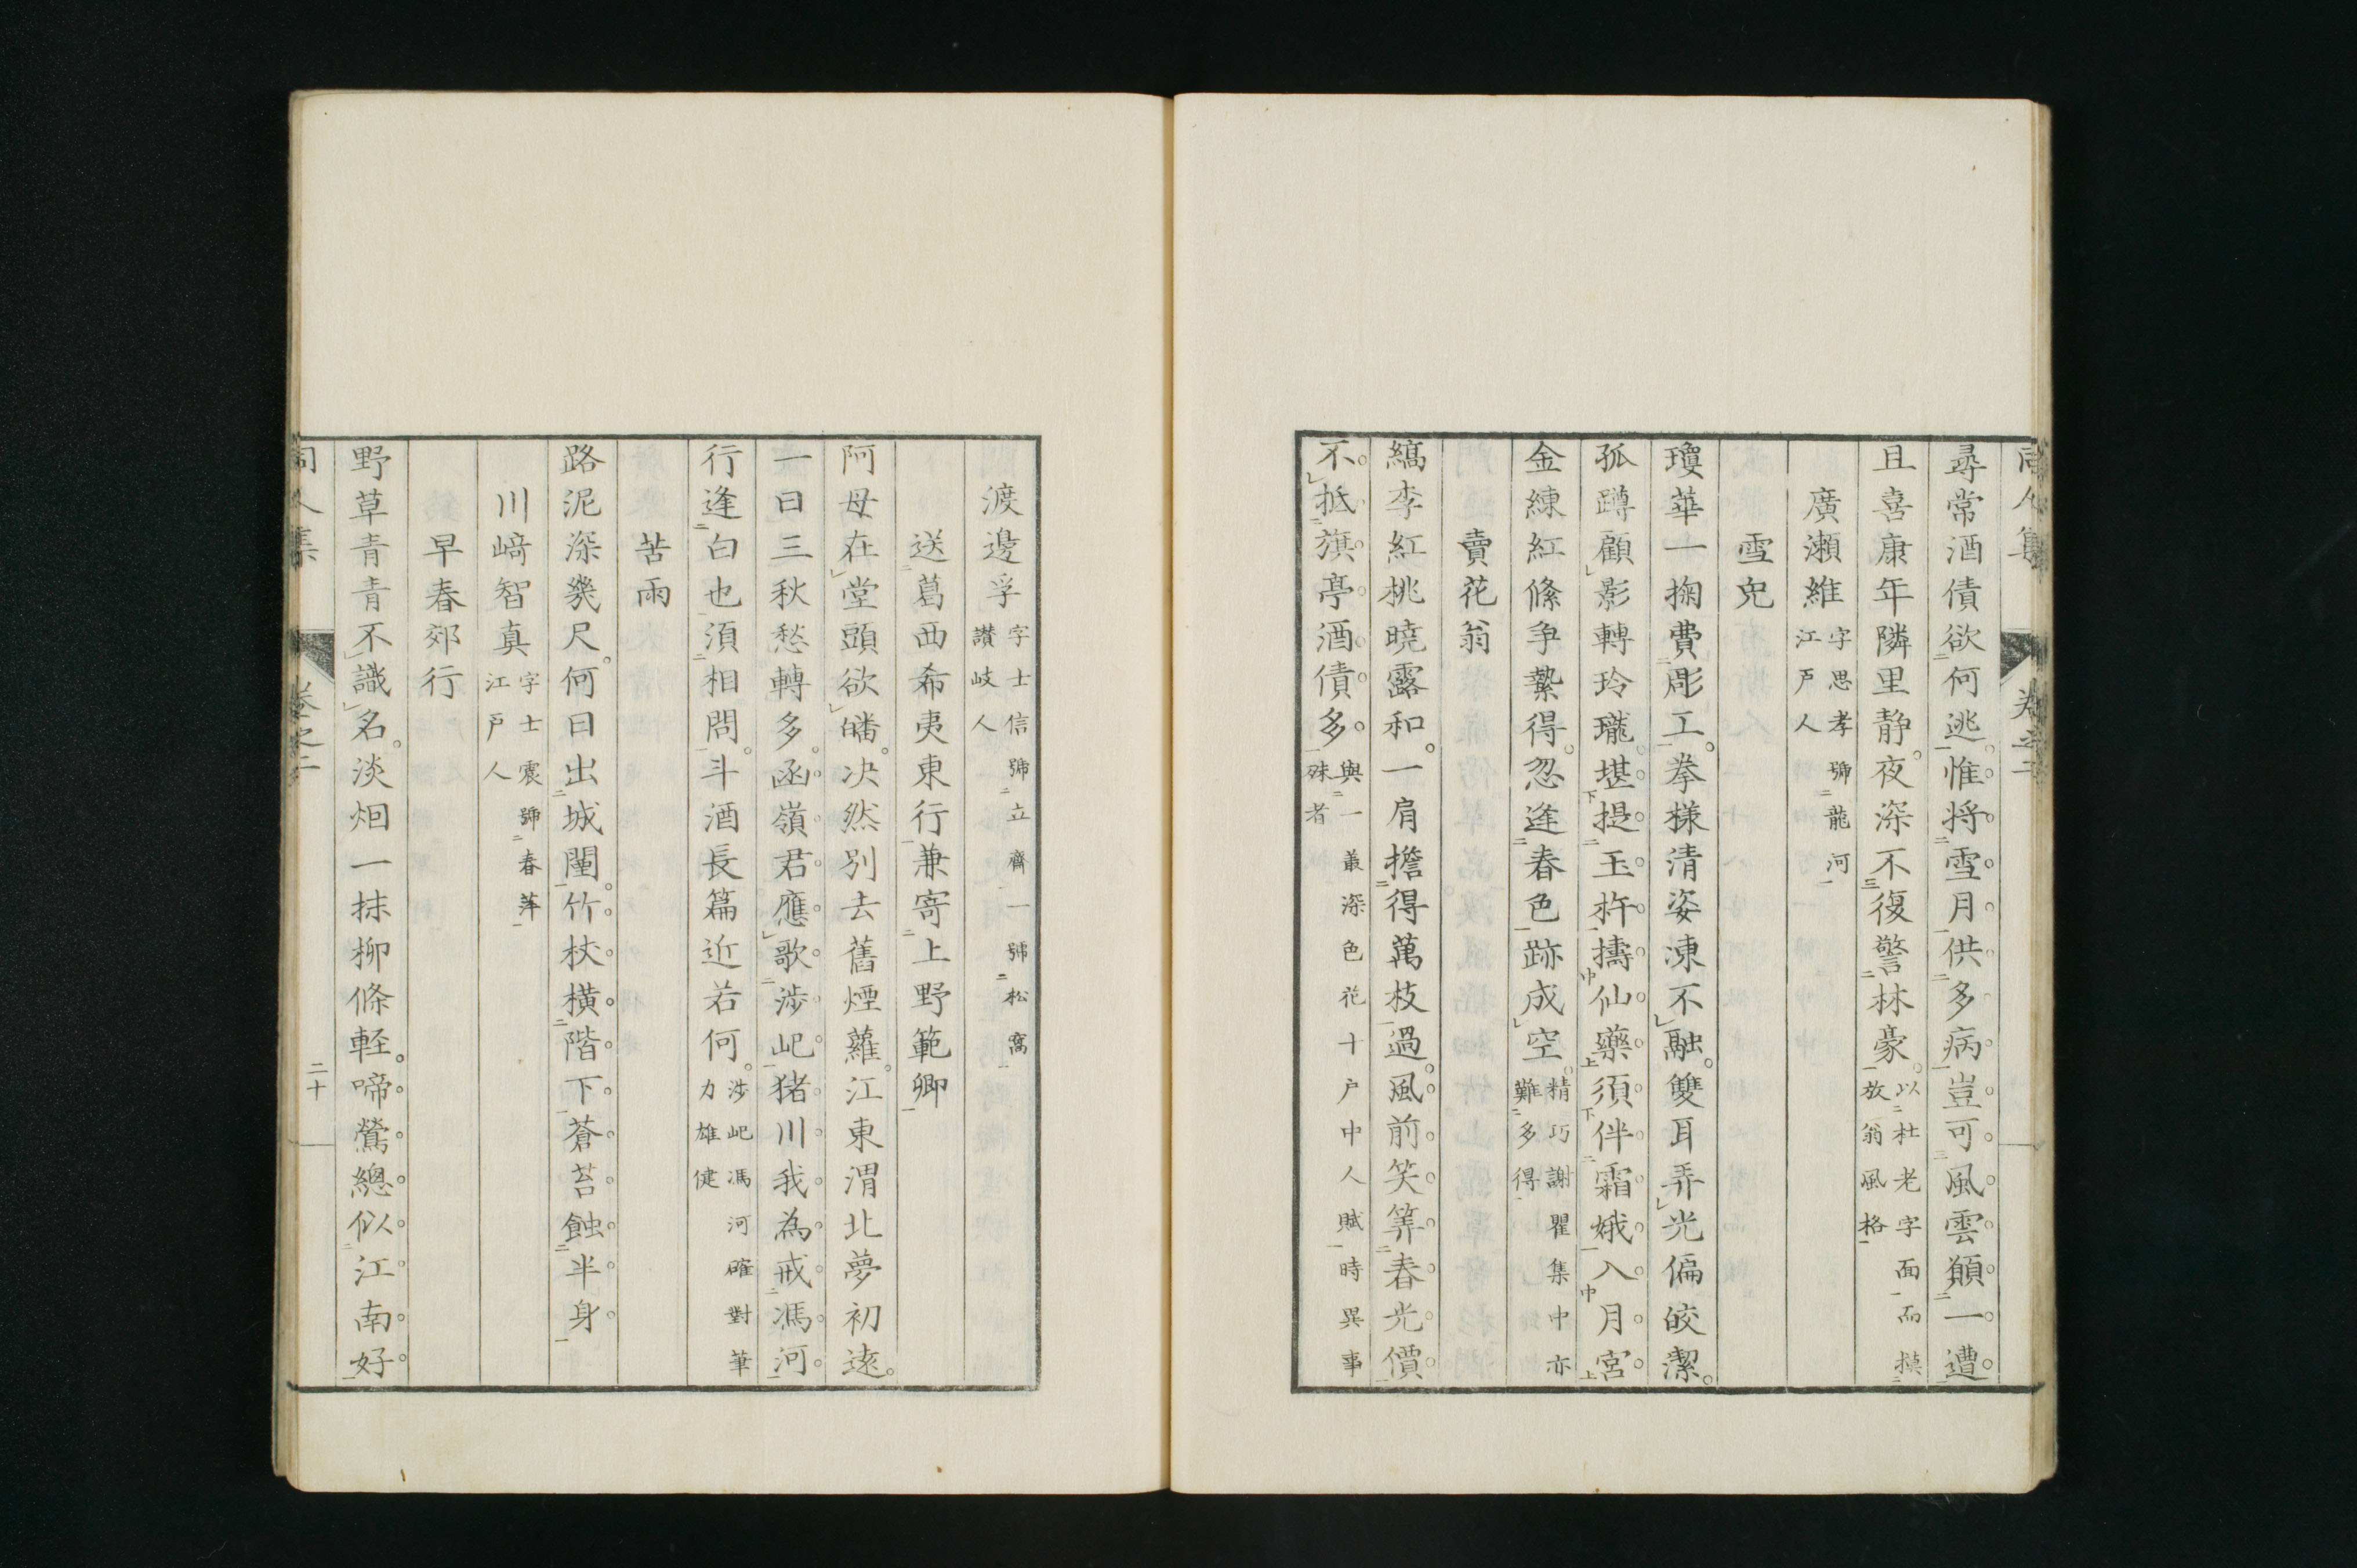 尋常酒債欲何逃。惟将雪月供多病。豈可風雲顛一遭。
且喜康年隣里静。夜深不復警林豪。以杜老字面而摸放翁風格
廣瀬維字思孝號龍河江戸人
雪兎
瓊華一掬費彫工。拳様清姿凍不融。雙耳弄光偏皎潔。
孤蹲顧影轉玲瓏。堪提玉杵擣仙藥。須伴霜娥入月宮。
金練紅絛争縶得。忽逢春色跡成空。精巧謝瞿集中亦難多得
賣花翁
縞李紅桃曉露和。一肩擔得萬枝過。風前笑筭春光價
不抵旗亭酒債多。與一叢深色花十户中人賦時異事殊者
渡邉孚字士信號立齋一號松窩讃岐人
送葛西希夷東行兼寄上野範卿
阿母在堂頭欲皤。决然別去舊煙蘿。江東渭北夢初遠。
一日三秋愁轉多。函嶺君應歌渉屺。猪川我為戒馮河。
行逢白也須相問。斗酒長篇近若何。渉屺馮河確對筆力雄健
苦雨
路泥深幾尺。何日出城闉。竹杖横階下。蒼苔蝕半身。
川﨑智真字士震號春萍江戸人
早春郊行
野草青青不識名。淡烟一抹柳條軽。啼鶯總似江南好
同人集 巻之二 二十